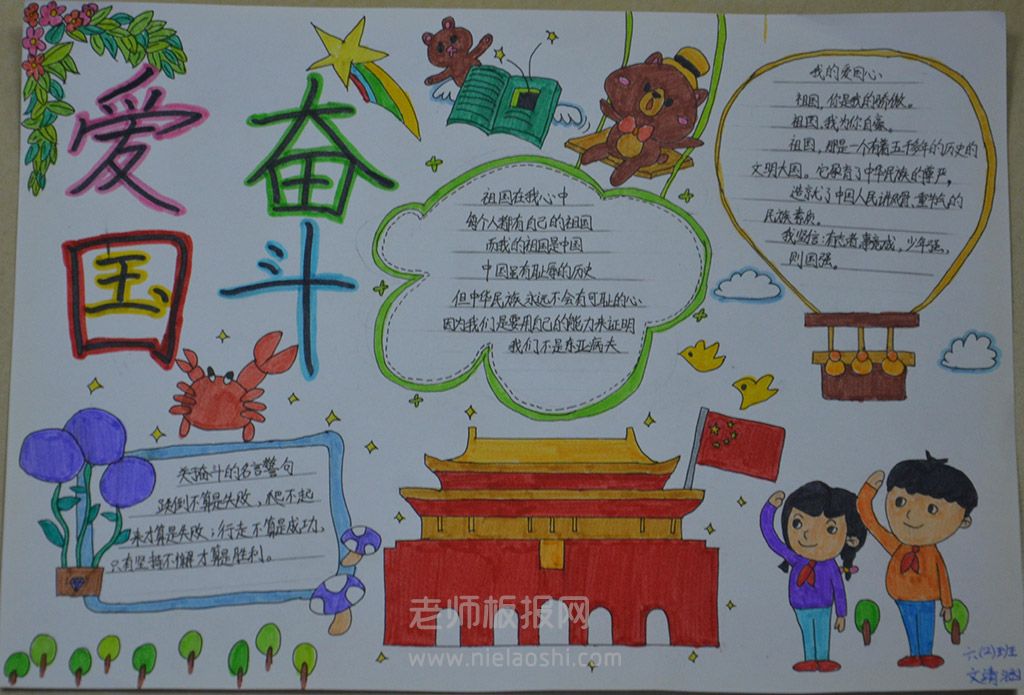 爱 奋
国 斗
祖国在我心中
每个人都有自己的祖国
而我的祖国是中国
中国虽有耻辱的历史
但中华民族永远不会有可耻的心
因为我们是要用自己的能力来证明
我们不是东亚病夫
我的爱国心
祖国，你是我的骄傲。
祖国，我为你自豪。
祖国，那是一个有着五千多年的历史的
文明大国。它孕育了中华民族的尊严，
造就了中国人民讲风骨、重气节的
民族素质。
我坚信：有志者，事竟成，少年强，
则国强。
关于奋斗的名言警句
跌倒不算是失败，爬不起
来才算是失败；行走不算是成功，
只有坚持不懈才算是胜利。
老师板报网
www.nielaoshi.com
六(2)班
文靖涵